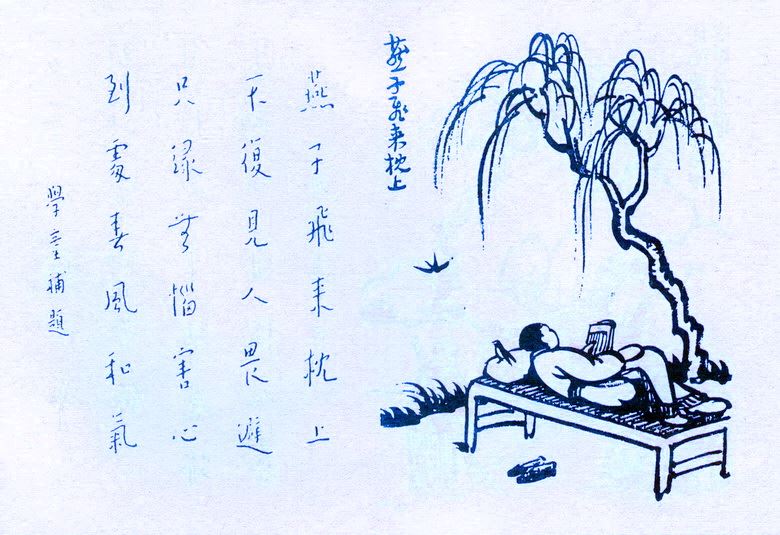 燕子飛来枕上
燕子飛来枕上
不復見人畏避
只緣無惱害心
到處春風和氣
學童補題